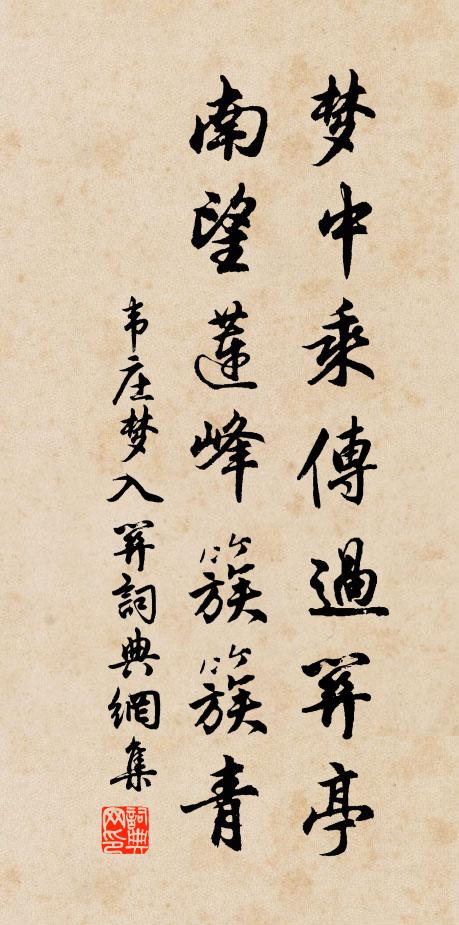 梦中乘傳過関亭
南望蓮峰簇簇青
韦庄梦入関詞典網集
詞典网印